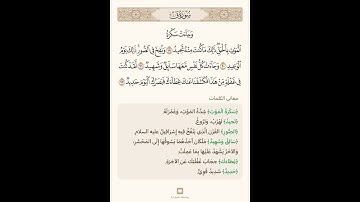 سُورَةُ ق
وَجَاءَتْ سَكْرَةُ
الْمَوْتِ بِالْحَقِّ ذَٰلِكَ مَا كُنتَ مِنْهُ تَحِيدُ ١٩ وَنُفِخَ فِي الصُّورِ ذَٰلِكَ يَوْمُ
الْوَعِيدِ ٢٠ وَجَاءَتْ كُلُّ نَفْسٍ مَّعَهَا سَائِقٌ وَشَهِيدٌ ٢١ لَّقَدْ كُنتَ
فِي غَفْلَةٍ مِّنْ هَٰذَا فَكَشَفْنَا عَنكَ غِطَاءَكَ فَبَصَرُكَ الْيَوْمَ حَدِيدٌ ٢٢
معاني الكلمات
﴿سَكْرَةُ الْمَوْتِ﴾ شِدَّةُ المَوْتِ، وَغَمْرَتُهُ.
﴿تَحِيدُ﴾ تَهْرُبُ، وَتَرُوغُ.
﴿الصُّورِ﴾ القَرْنِ الَّذِي يَنْفُخُ فِيهِ إِسْرَافِيلُ عليه السلام.
﴿سَائِقٌ وَشَهِيدٌ﴾ مَلَكَانِ أَحَدُهُمَا يَسُوقُهَا إِلَى المَحْشَرِ،
وَالآخَرُ يَشْهَدُ عَلَيْهَا بِمَا عَمِلَتْ.
﴿غِطَاءَكَ﴾ حِجَابَ غَفْلَتِكَ عَنِ الآخِرَةِ.
﴿حَدِيدٌ﴾ شَدِيدٌ قَوِيٌّ.